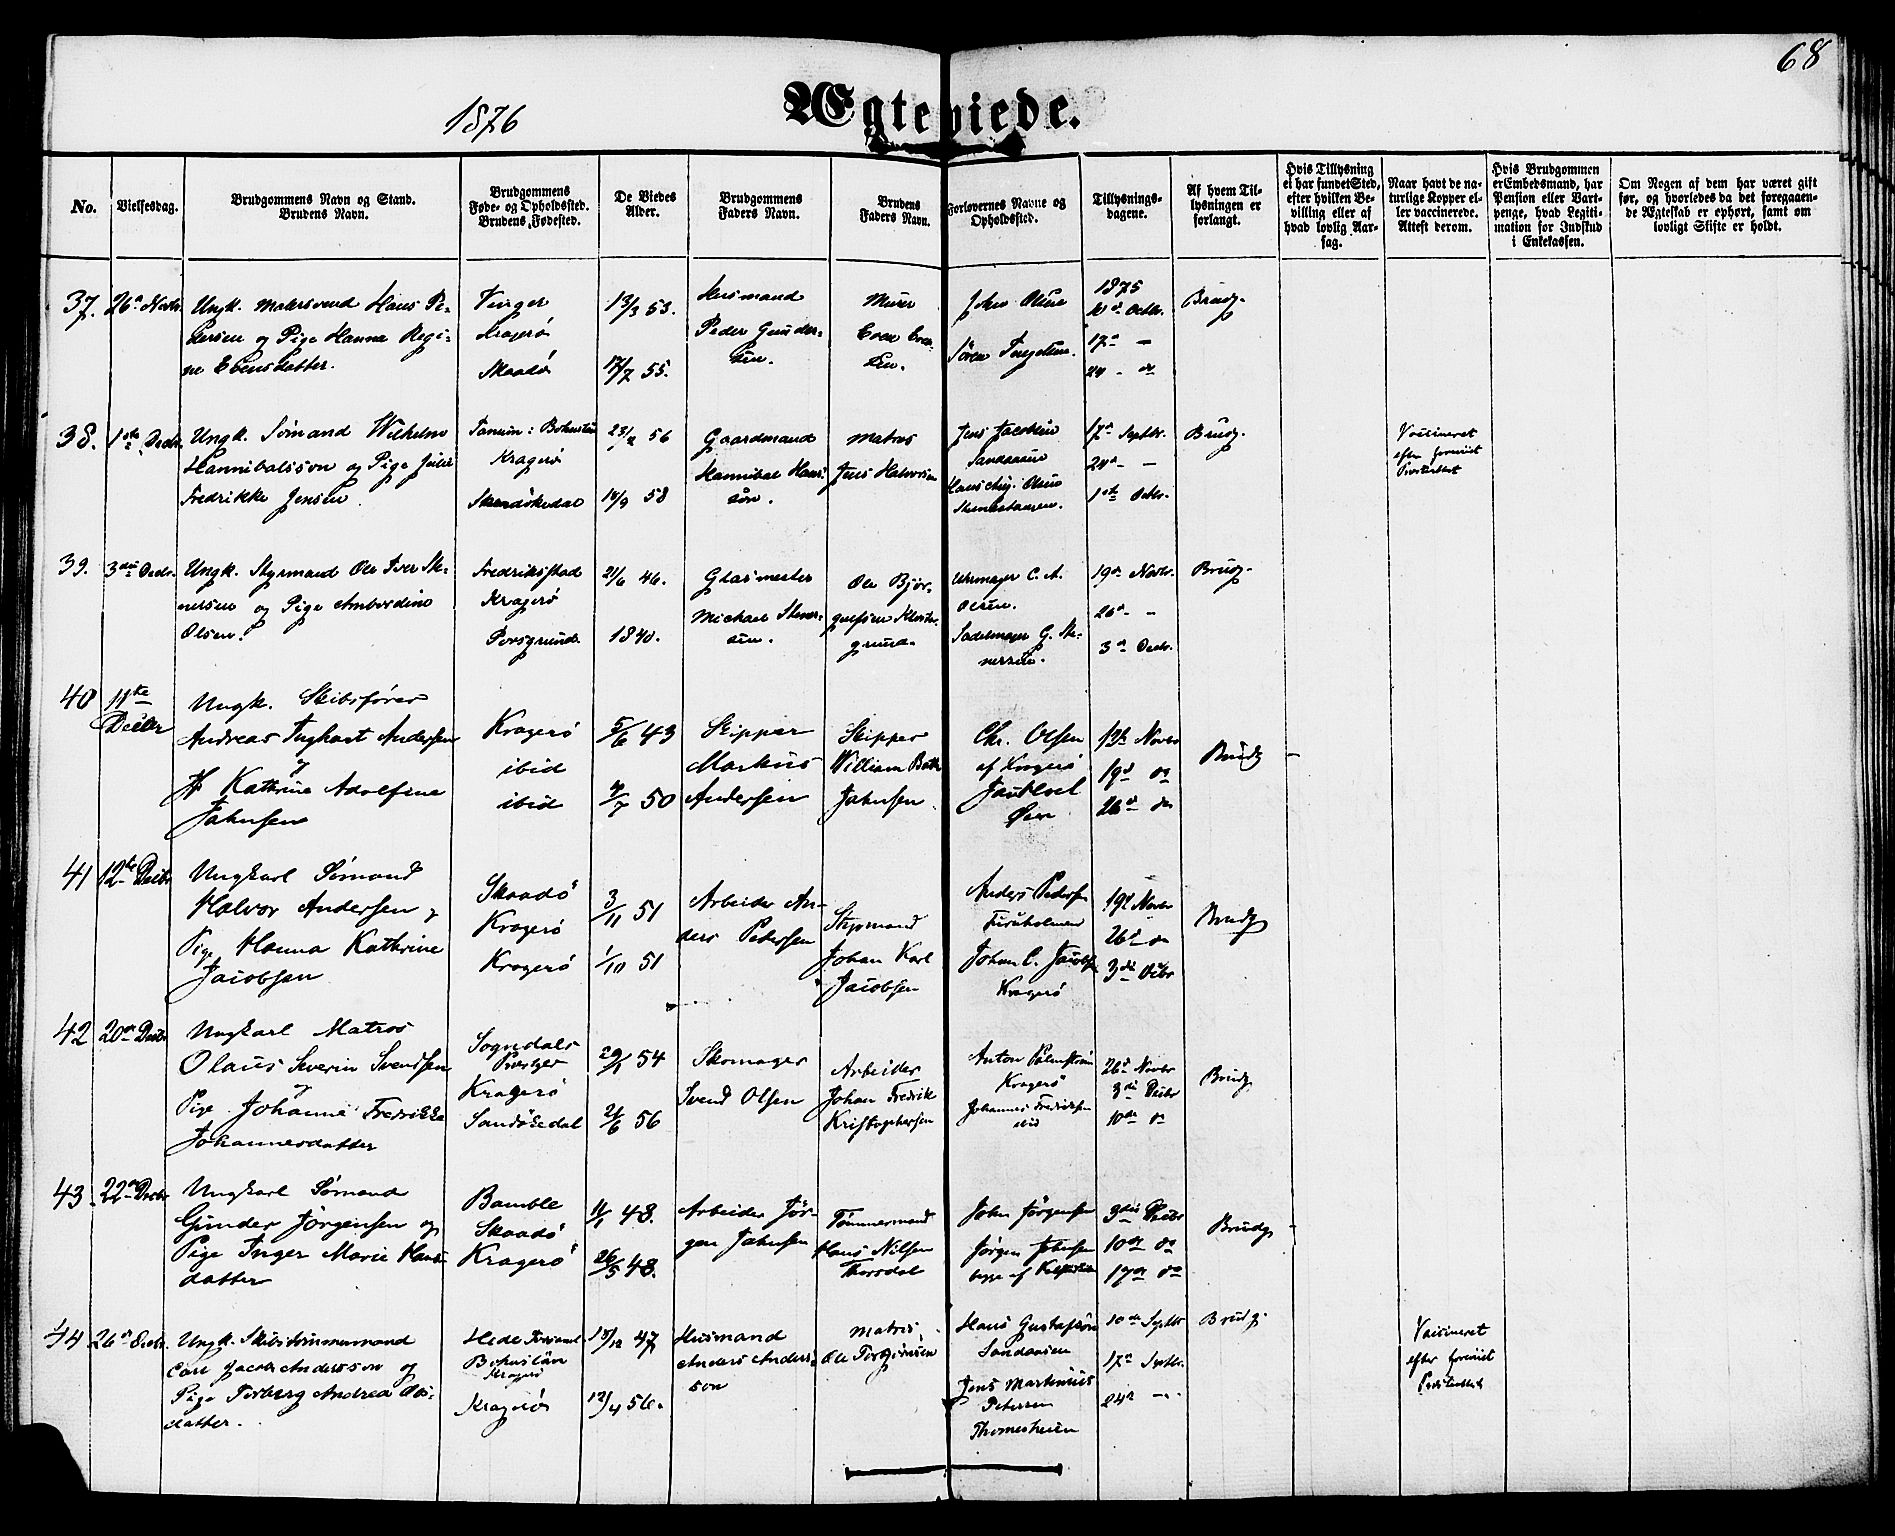 68
1876
Ægteviede.
No.
Vielsesdag.
Brudgommens Navn og Stand.
Brudens Navn.
Brudgommens
Føde- og Opholdssted.
Brudens Fødested.
De Viedes
Alder.
Brudgommens
Faders Navn.
Brudens
Faders Navn.
Forlovernes Navne og
Opholdssted.
Tillysnings-
dagene.
Af hvem Til-
lysningen er
forlangt.
Hvis Tillysning
ei har fundet Sted,
efter hvilken Be-
villing eller af
hvad lovlig Aar-
sag.
Naar havt de na-
turlige Kopper el-
ler vaccinerede.
Attest derom.
Hvis Brudgommen
er Embedsmand, har
Pension eller Vart-
penge, hvad Legiti-
mation for Indskud
i Enkekassen.
Om Nogen af dem har været gift
før, og hvorledes da det foregaaen-
de Ægteskab er ophørt, samt om
lovligt Skifte er holdt.
37.
26de Novbr.
Ungk. Malersvend Hans Pe-
tersen og Pige Hanna Regi-
ne Evensdatter.
Vinger
Kragerø
Skaadø
13/3 53.
17/7 55.
Husmand
Peder Gunder-
sen.
Murer
Even Even-
sen.
John Olsen
Søren
1875
10de Octbr.
17de —
24 - do
Brudg.
38.
1ste Decbr.
Ungk. Sømand Wilhelm
Hannibalsson og Pige Julie
Fredrikke Jensen.
Tanum: Bohuslän
Kragerø
Sandøkedal
23/2 56
14/9 58
Gaardmand
Hannibal Hans-
søn.
Matros
Jens Halvorsen
Jens Jacobsen
Sandaaen
Hans Chr. Olsen
17de Septbr.
24de —
1ste Octbr.
Brudg.
Vaccineret
efter foreviist
Præsteattest
39.
3die Decbr.
Ungk. Styrmand Ole Iver Ste-
nersen og Pige Amberdine
Olsen.
Fredrikstad
Kragerø
Porsgrund
21/6 46.
1840.
Glasmester
Michael Stener-
sen.
Ole Bjør-
gulfsen
grund.
Uhrmager C. A.
Olsen.
Sadelmager G. Ste-
nersen.
19de Novbr.
26de "
3de Decbr.
Brudg.
40
11te
Decbr
Ungk. Skibsfører
Andreas Inghart Andersen
og
Kathrine Adolfine
Jahnsen
Kragerø
ibid
ibid
5/6 43
4/7 50
Skipper
Markus
Andersen
Skipper
William Bath
Jahnsen
Chr. Olsen
af Kragerø
12te Novbr
19de do
26de do
Brudg
41
12te Decbr
Ungkarl Sømand
Halvor Andersen og
Pige Hanna Kathrine
Jacobsen
Skaadø
Kragerø
Kragerø
3/11 51
1/10 51
Arbeider An-
ders Pedersen
Styrmand
Johan Karl
Jacobsen
Anders Pedersen
Furuholmen
Johan C. Jacobsen
Kragerø
19de Novbr
26de do
3die Decbr
Brudg
42
20de Decbr
Ungkarl Matros
Olaus Severin Svendsen
og
Pige Johanne Fredrikke
Johannesdatter
Sogndals
Præstgj
Kragerø
Sandøkedal
29/1 54
2/6 56
Skomager
Svend Olsen
Arbeider
Johan Fredrik
Kristophersen
Anton Palmstrøm
Kragerø
Johannes Fredriksen
ibid
26de Novbr
3die Decbr
10de do
Brudg
43.
22de Decbr
Ungkarl Sømand
Gunder Jørgensen og
Pige Inger Marie Hans-
datter
Bamble
Skaadø
Kragerø
11/1 48.
26/5 48.
Arbeider Jør-
gen Jahnsen
Tømmermand
Hans Nilsen
Thorsdal
John Jørgensen
Jørgen Johnsen
begge af
3die Decbr
10de do
17de do
Brudg
44
26de Decbr.
Ungk. Skibstømmermand
Carl Jacob Andersson og
Pige Torberg Andrea Ols-
datter.
Hede
Bohuslän
Kragerø
Kragerø
13/12 47
12/4 56.
Husmand
Anders Anders-
son
Matros
Ole Torgersen
Hans Gustafsen
Sandaasen
Jens Martinius
Petersen
Thomesheien
10de Septbr
17de Septbr.
24de —
Brudg.
Vaccineret
efter foreviist
Præsteattest